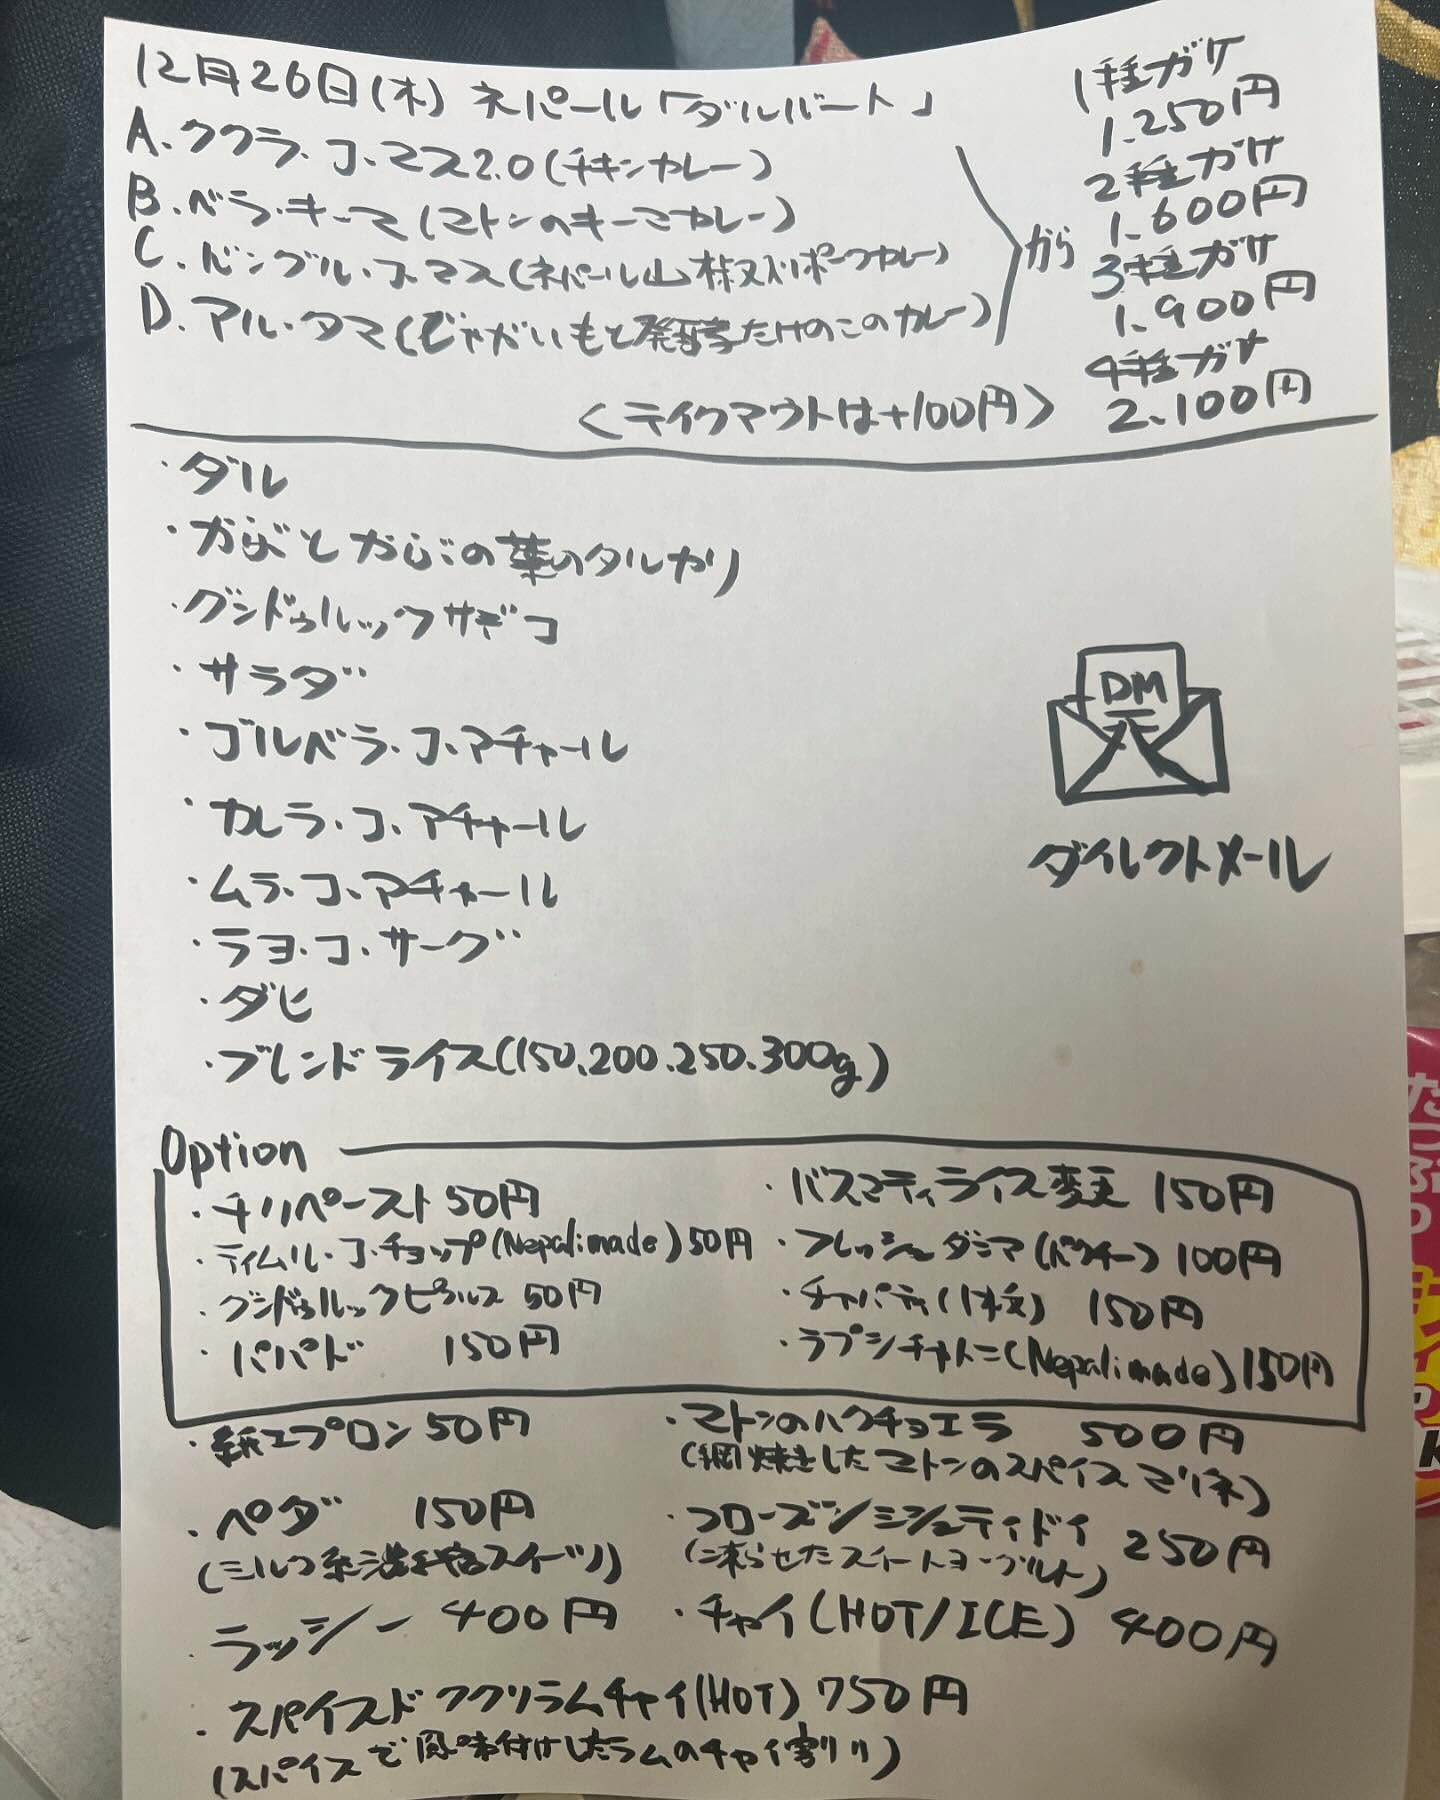 12月26日(木) ネパール「ダルバート」
A. ククラ・コ・マス2.0(チキンカレー)
B. ベラ・キーマ(マトンのキーマカレー)
C. バングル・コ・マス(ネパール山椒入りポークカレー)
D. アル・タマ(じゃがいもと発酵たけのこのカレー)
から
1種ガケ
1.250円
2種ガケ
1.600円
3種ガケ
1.900円
4種ガケ
2.100円
<テイクアウトは+100円>
・ダル
・かぶとかぶの葉のタルカリ
・グンドゥルックサデコ
・サラダ
・ゴルベラ・コ・アチャール
・カレラ・コ・アチャール
・ムラ・コ・アチャール
・ラヨ・コ・サーグ
・ダヒ
・ブレンドライス(150.200.250.300g)
DM
ダイレクトメール
Option
・チリペースト 50円
・ティムル・コ・チョップ(Nepali made) 50円
・グンドゥルックピクルス 50円
・パパド 150円
・バスマティライス変更 150円
・フレッシュダニア(パクチー) 100円
・チャパティ(1枚) 150円
・ラプシチャトニ(Nepali made) 150円
・紙エプロン 50円
・ペダ 150円
(ミルク系濃厚スイーツ)
・ラッシー 400円
・マトンのハクチョエラ 500円
(網焼きしたマトンのスパイスマリネ)
・フローズンミシュティドイ 250円
(凍らせたスイートヨーグルト)
・チャイ(HOT/ICE) 400円
・スパイスドククリラムチャイ(HOT) 750円
(スパイスで風味付けしたラムのチャイ割り)